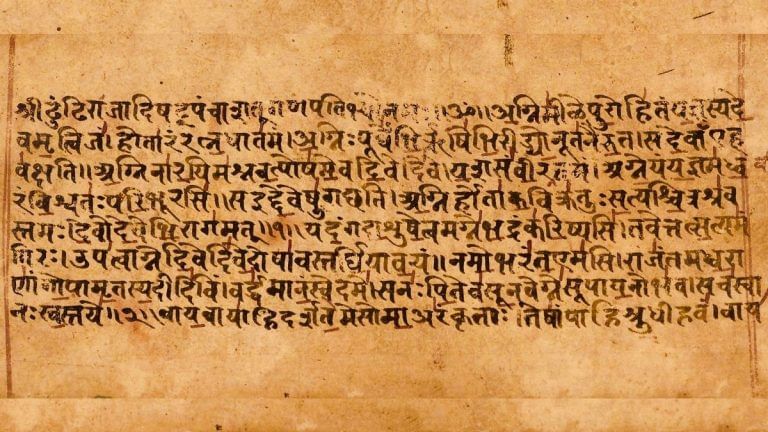 श्रीढुंढिराजादिषट्पंचाशत् गणपतिभ्यो नमः॥ॐ॥अग्निमीळेपुरोहितंयज्ञस्यदे
वमृत्विजं।होतारंरत्नधातमं।अग्निःपूर्वेभिर्ऋषिभिरीड्योनूतनैरुत।सदेवाँएह
वक्षति॥अग्निनारयिमश्नवत्पोषमेवदिवेदिवे।यशसंवीरवत्तमं।अग्नेयंयज्ञमध्व
रंविश्वतःपरिभूरसि॥सइद्देवेषुगच्छति।अग्निर्होताकविक्रतुःसत्यश्चित्रश्रव
स्तमः।देवोदेवेभिरागमत्॥१॥यदंगदाशुषेत्वमग्नेभद्रंकरिष्यसि।तवेत्तत्सत्यम
गिरः।उपत्वाग्नेदिवेदिवेदोषावस्तर्द्धियावयं॥नमोभरंतएमसि।राजंतमध्वरा
णांगोपामृतस्यदीदिविं।वर्द्धमानंस्वेदमे।सनःपितेवसूनवेग्नेसूपायनोभव।सचस्वा
नःस्वस्तये॥२॥वायवायाहिदर्शतेमेसोमाअरंकृताः।तेषांपाहिश्रुधीहवं।वाय